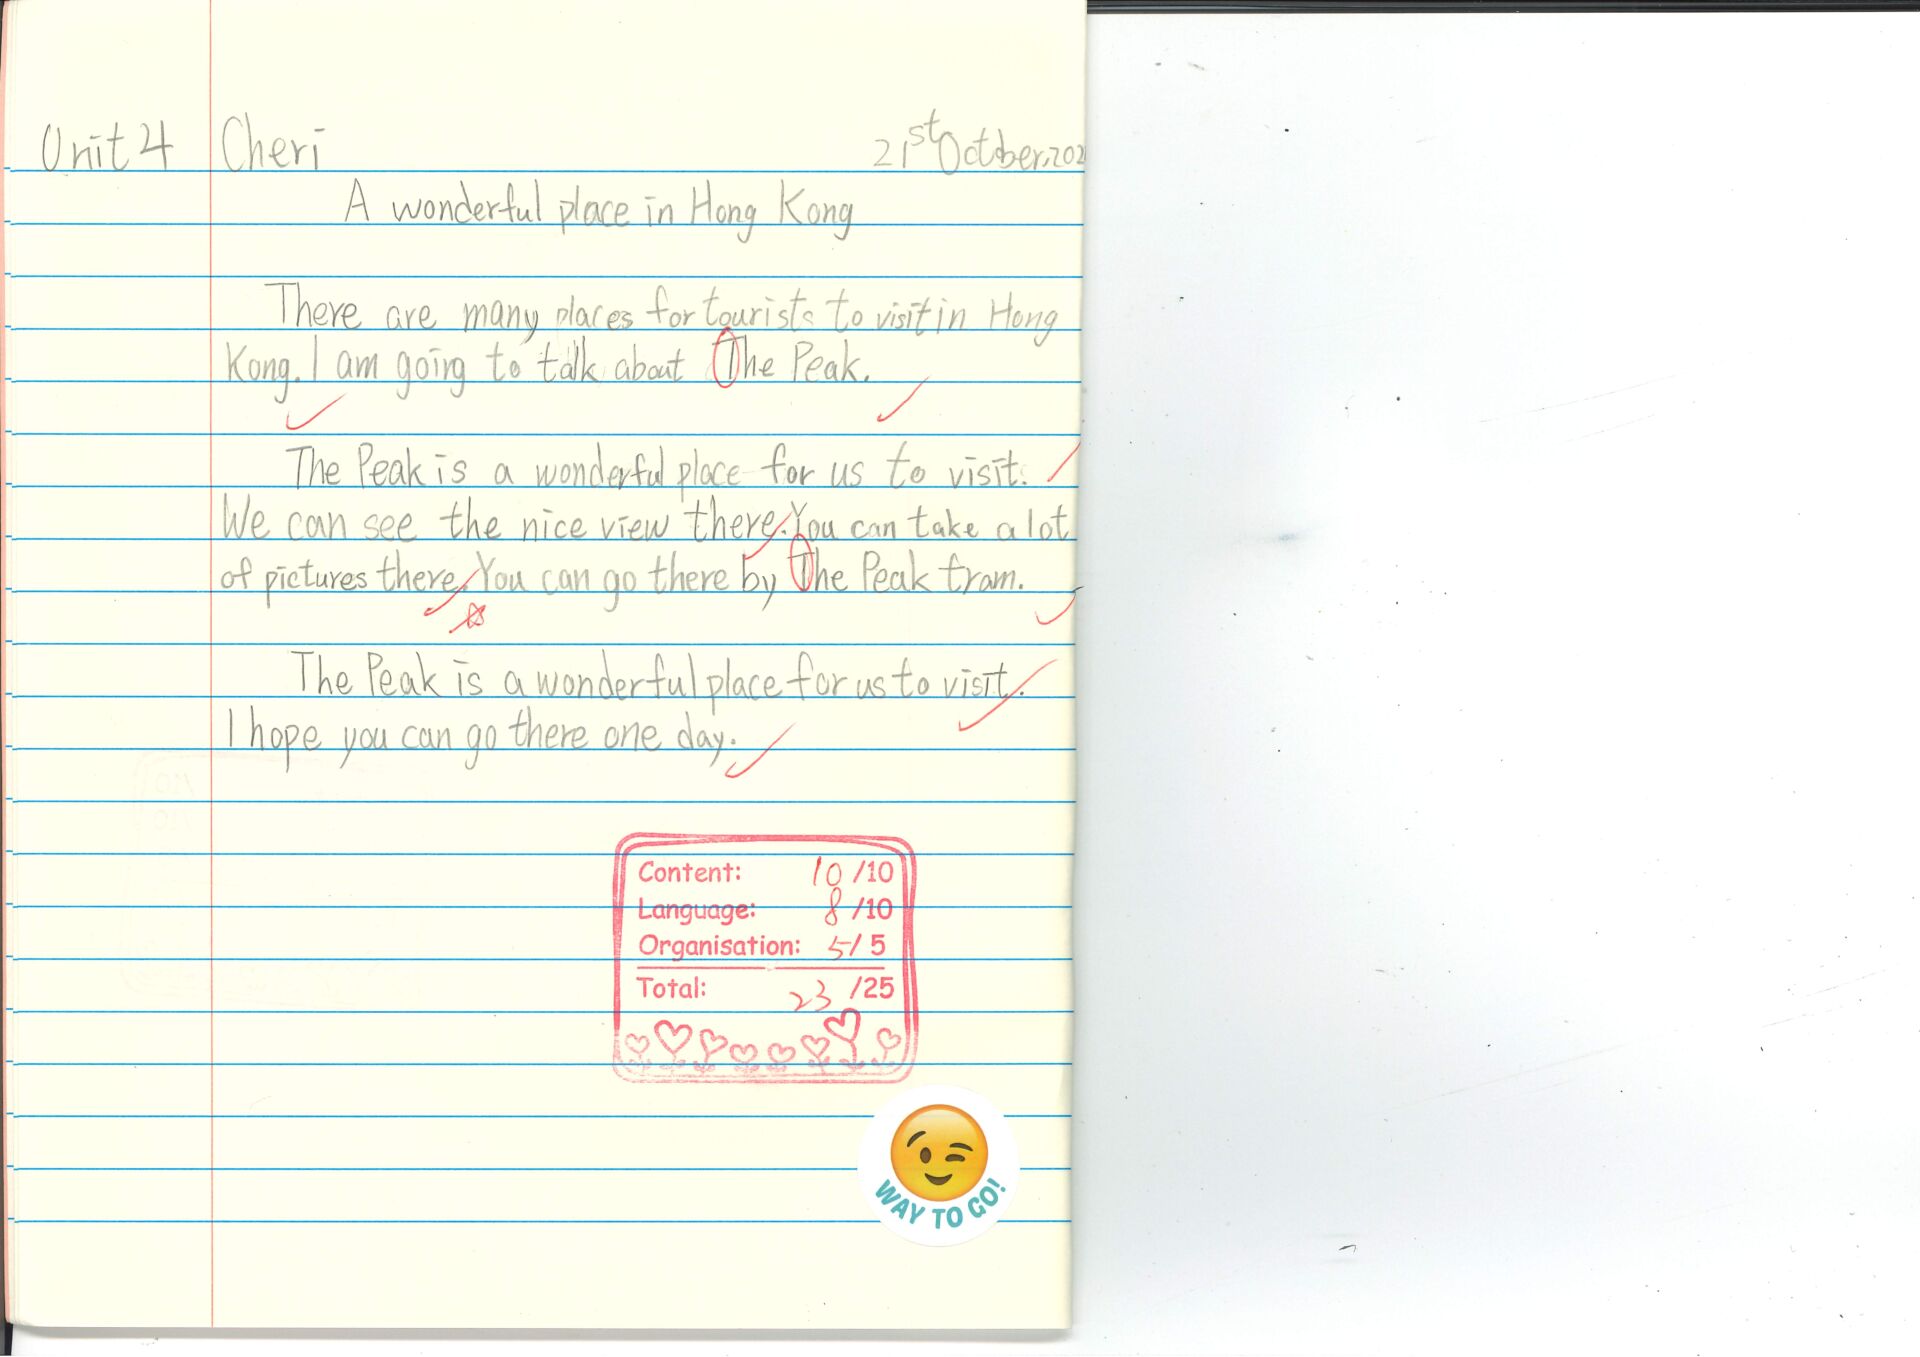 Unit 4 Cheri 21st October, 202
A wonderful place in Hong Kong
There are many places for tourists to visit in Hong
Kong. I am going to talk about The Peak.
The Peak is a wonderful place for us to visit.
We can see the nice view there. You can take a lot
of pictures there. You can go there by The Peak tram.
The Peak is a wonderful place for us to visit.
I hope you can go there one day.
Content: 10/10
Language: 8/10
Organisation: 5/5
Total: 23/25
WAY TO GO!